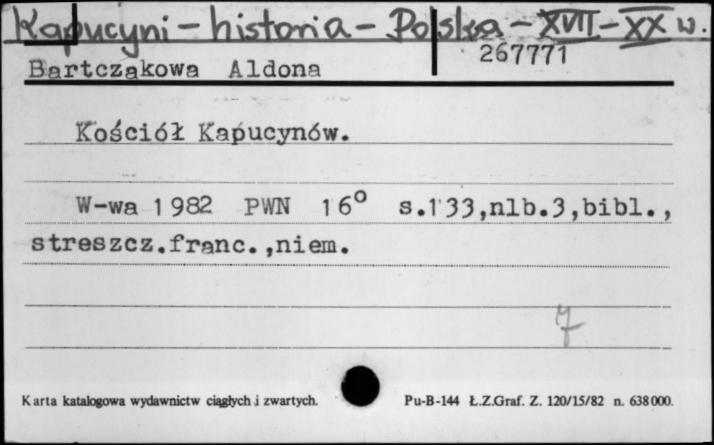 Kapucyni - historia - Polska - XVII - XX w.
267771
Bartczakowa Aldona
Kościół Kapucynów.
W-wa 1982 PWN 16° s.133,nlb.3,bibl.,
streszcz.franc.,niem.
7
Karta katalogowa wydawnictw ciągłych i zwartych. Pu-B-144 Ł.Z.Graf. Z. 120/15/82 n. 638000.